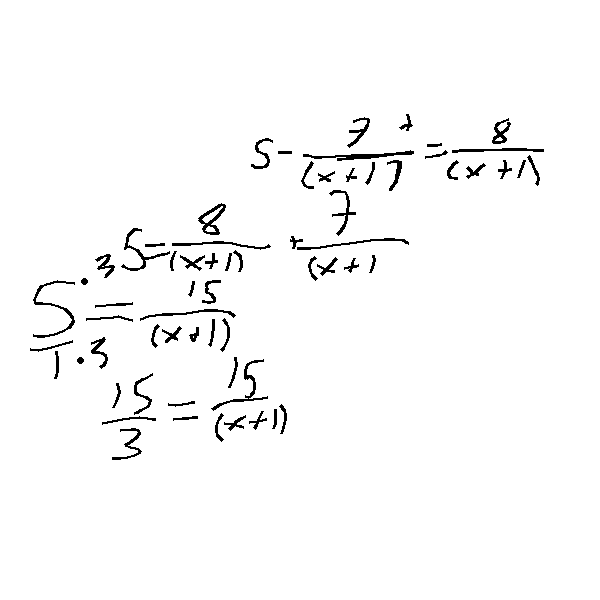 5 - 7/(x+1) + = 8/(x+1)
5 = 8/(x+1) + 7/(x+1
5·3/1·3 = 15/(x+1)
15/3 = 15/(x+1)